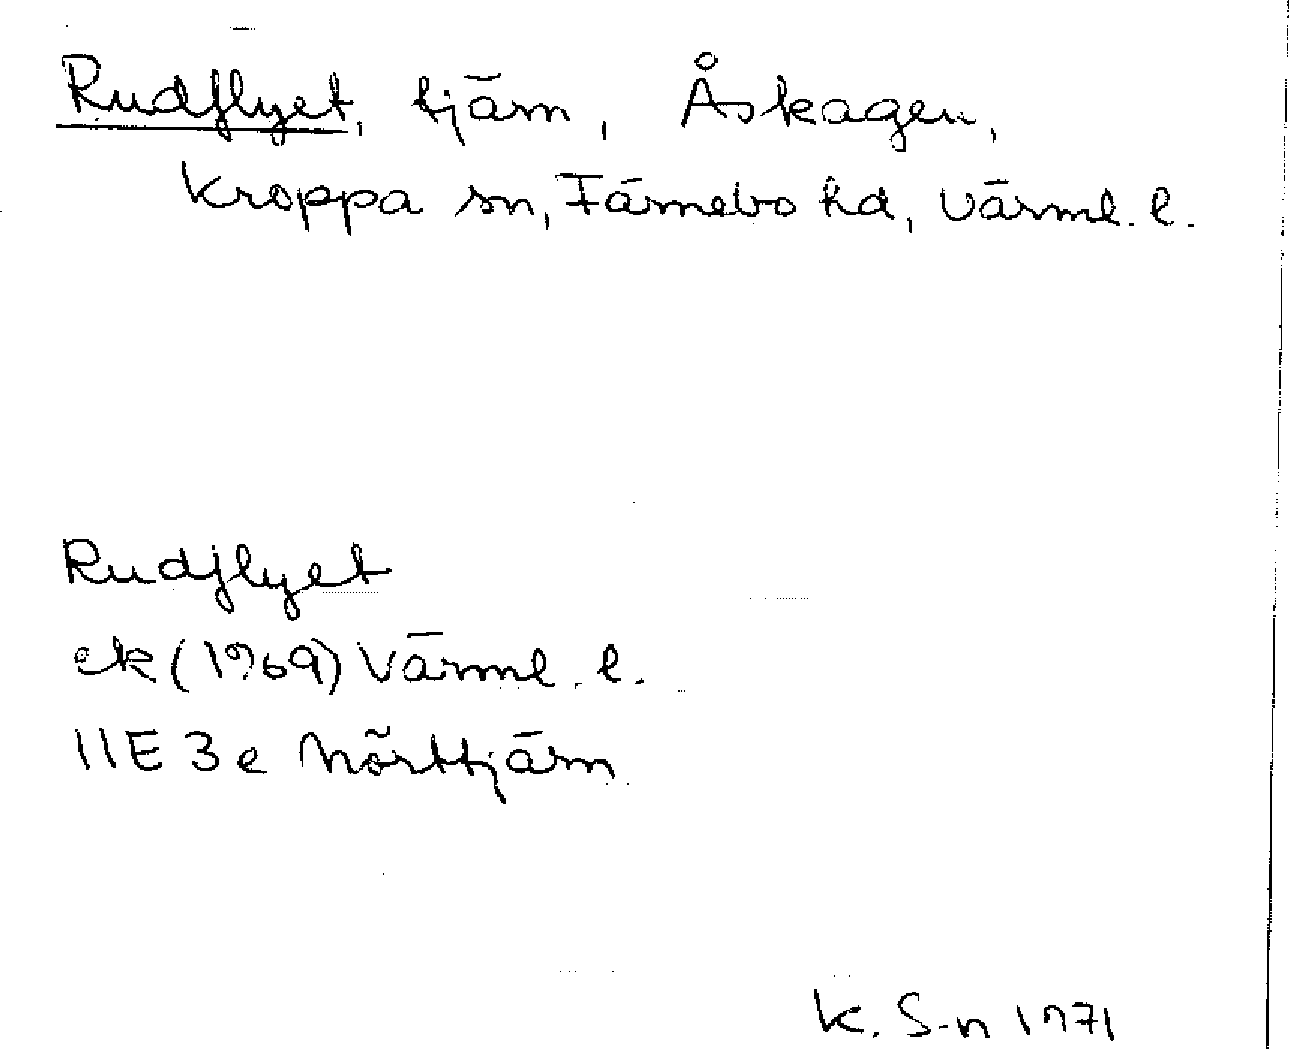 Rudflyet, tjärn, Åskagen,
Kroppa sn, Färnebo hd, Värml. l.
Rudflyet
ek (1969) Värml. l.
11E 3e Mörttjärn
K. S-n 1971